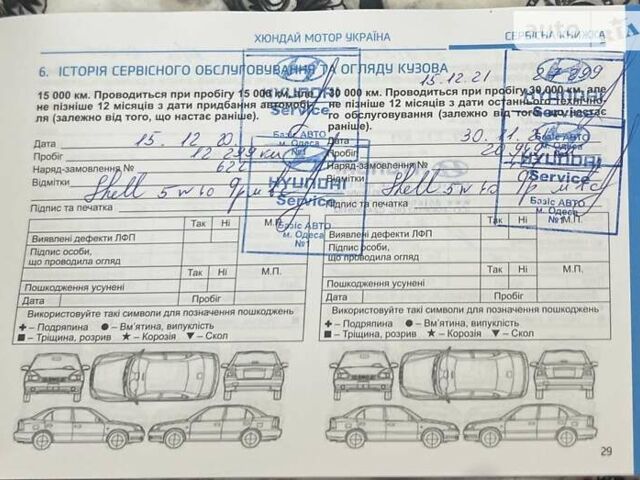 ХЮНДАЙ МОТОР УКРАЇНА
СЕРВІСНА КНИЖКА
6. ІСТОРІЯ СЕРВІСНОГО ОБСЛУГОВУВАННЯ ТА ОГЛЯДУ КУЗОВА
15.12.21
15 000 км. Проводиться при пробігу 15 000 км, але
не пізніше 12 місяців з дати придбання автомобі-
ля (залежно від того, що настає раніше).
Дата 15.12.20
Пробіг 12 299 км
Наряд-замовлення № 622
Відмітки Shell 5w40
Підпис та печатка
Так Ні М.П.
Виявлені дефекти ЛФП
Підпис особи,
що проводила огляд
Так Ні М.П.
Пошкодження усунені
Дата Пробіг
Використовуйте такі символи для позначення пошкоджень
+ – Подряпина ● – Вм'ятина, випуклість
■ – Тріщина, розрив ★ – Корозія ▼ – Скол
30 000 км. Проводиться при пробігу 30 000 км, але
не пізніше 12 місяців з дати останнього технічно-
го обслуговування (залежно від того, що настає
раніше).
Дата 30.11
Пробіг
Наряд-замовлення №
Відмітки Shell 5w40
Підпис та печатка
Так Ні М.П.
Виявлені дефекти ЛФП
Підпис особи,
що проводила огляд
Так Ні М.П.
Пошкодження усунені
Дата Пробіг
Використовуйте такі символи для позначення пошкоджень
+ – Подряпина ● – Вм'ятина, випуклість
■ – Тріщина, розрив ★ – Корозія ▼ – Скол
HYUNDAI
Service
Базіс АВТО
м. Одеса
№1
HYUNDAI
Service
Базіс АВТО
м. Одеса
№1
HYUNDAI
Service
Базіс АВТО
м. Одеса
HYUNDAI
Service
Базіс АВТО
м. Одеса
№1
29